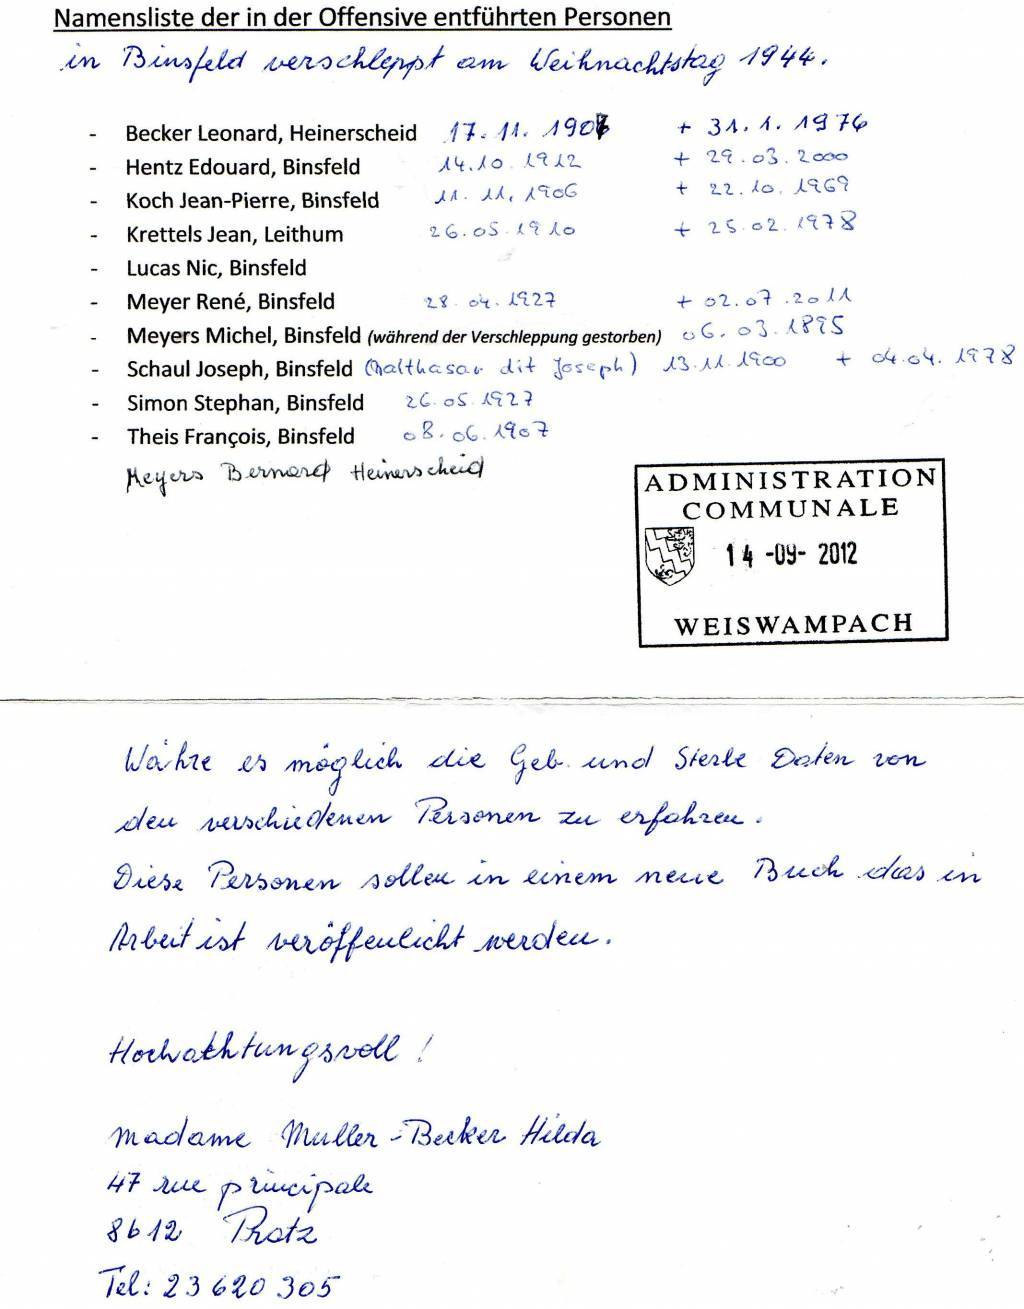 Namensliste der in der Offensive entführten Personen
in Binsfeld verschleppt am Weihnachtstag 1944.
- Becker Leonard, Heinerscheid 17.11.1907 + 31.1.1976
- Hentz Edouard, Binsfeld 14.10.1912 + 29.03.2000
- Koch Jean-Pierre, Binsfeld 11.11.1906 + 22.10.1969
- Krettels Jean, Leithum 26.05.1910 + 25.02.1978
- Lucas Nic, Binsfeld
- Meyer René, Binsfeld 28.04.1927 + 02.07.2011
- Meyers Michel, Binsfeld (während der Verschleppung gestorben) 06.03.1895
- Schaul Joseph, Binsfeld (Balthasar dit Joseph) 13.11.1900 + 04.04.1978
- Simon Stephan, Binsfeld 26.05.1927
- Theis François, Binsfeld 08.06.1907
Meyers Bernard Heinerscheid
ADMINISTRATION
COMMUNALE
14-09-2012
WEISWAMPACH
Währe es möglich die Geb. und Sterbe Daten von
den verschiedenen Personen zu erfahren.
Diese Personen sollen in einem neue Buch das in
Arbeit ist veröffenlicht werden.
Hochachtungsvoll!
Madame Muller-Becker Hilda
47 rue principale
8612 Pratz
Tel: 23 620 305